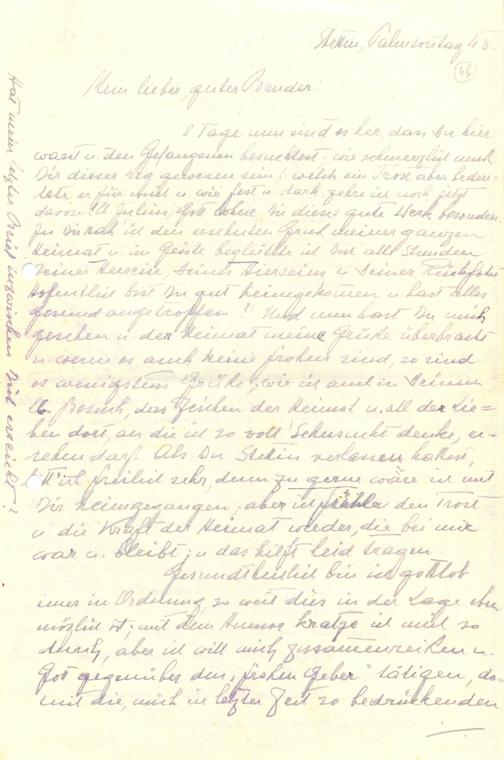 Stettin, Palmsonntag 43.
46
Mein lieber, guter Bruder!
8 Tage nun sind es her, dass Du hier
warst u. den Gefangenen besuchtest; wie schmerzlich muss
Dir dieser Weg gewesen sein! welch ein Trost aber bedeu-
tete er für mich u. wie fest u. stark zehre ich noch jetzt
davon! Julius, Gott lohne Dir dieses gute Werk besonders.
In Dir sah ich den ersehnten Gruß meiner ganzen
Heimat u. im Geiste begleitete ich Dich alle Stunden
Deiner Herreise, Deines Hierseins u. Deiner
Hoffentlich bist Du gut heimgekommen u. hast alles
gesund angetroffen! Und nun hast Du mich
gesehen u. der Heimat meine Grüße überbracht
u. wenn es auch keine frohen sind, so sind
es wenigstens Grüße; wie ich auch in Deinem
lb Besuch, das Zeichen der Heimat u. all der Lie-
ben dort, an die ich so voll Sehnsucht denke, er-
sehen darf. Als Du Stettin verlassen hattest,
sehr, denn zu gerne wäre ich mit
Dir heimgegangen, aber ich fühle den Trost
u. die Kraft der Heimat wieder, die bei mir
war u. bleibt; u. das hilft leid tragen
Gesundheitlich bin ich gottlob
imer in Ordnung, so weit dies in der Lage eben
möglich ist; mit dem Humor kratze ich mich so
durch, aber ich will mich zusamenreißen u.
Gott gegenüber den „frohen Geber" tätigen, da-
mit die, mich in letzter Zeit so bedrückenden
Hat mein letzter Brief inzwischen Dich erreicht?